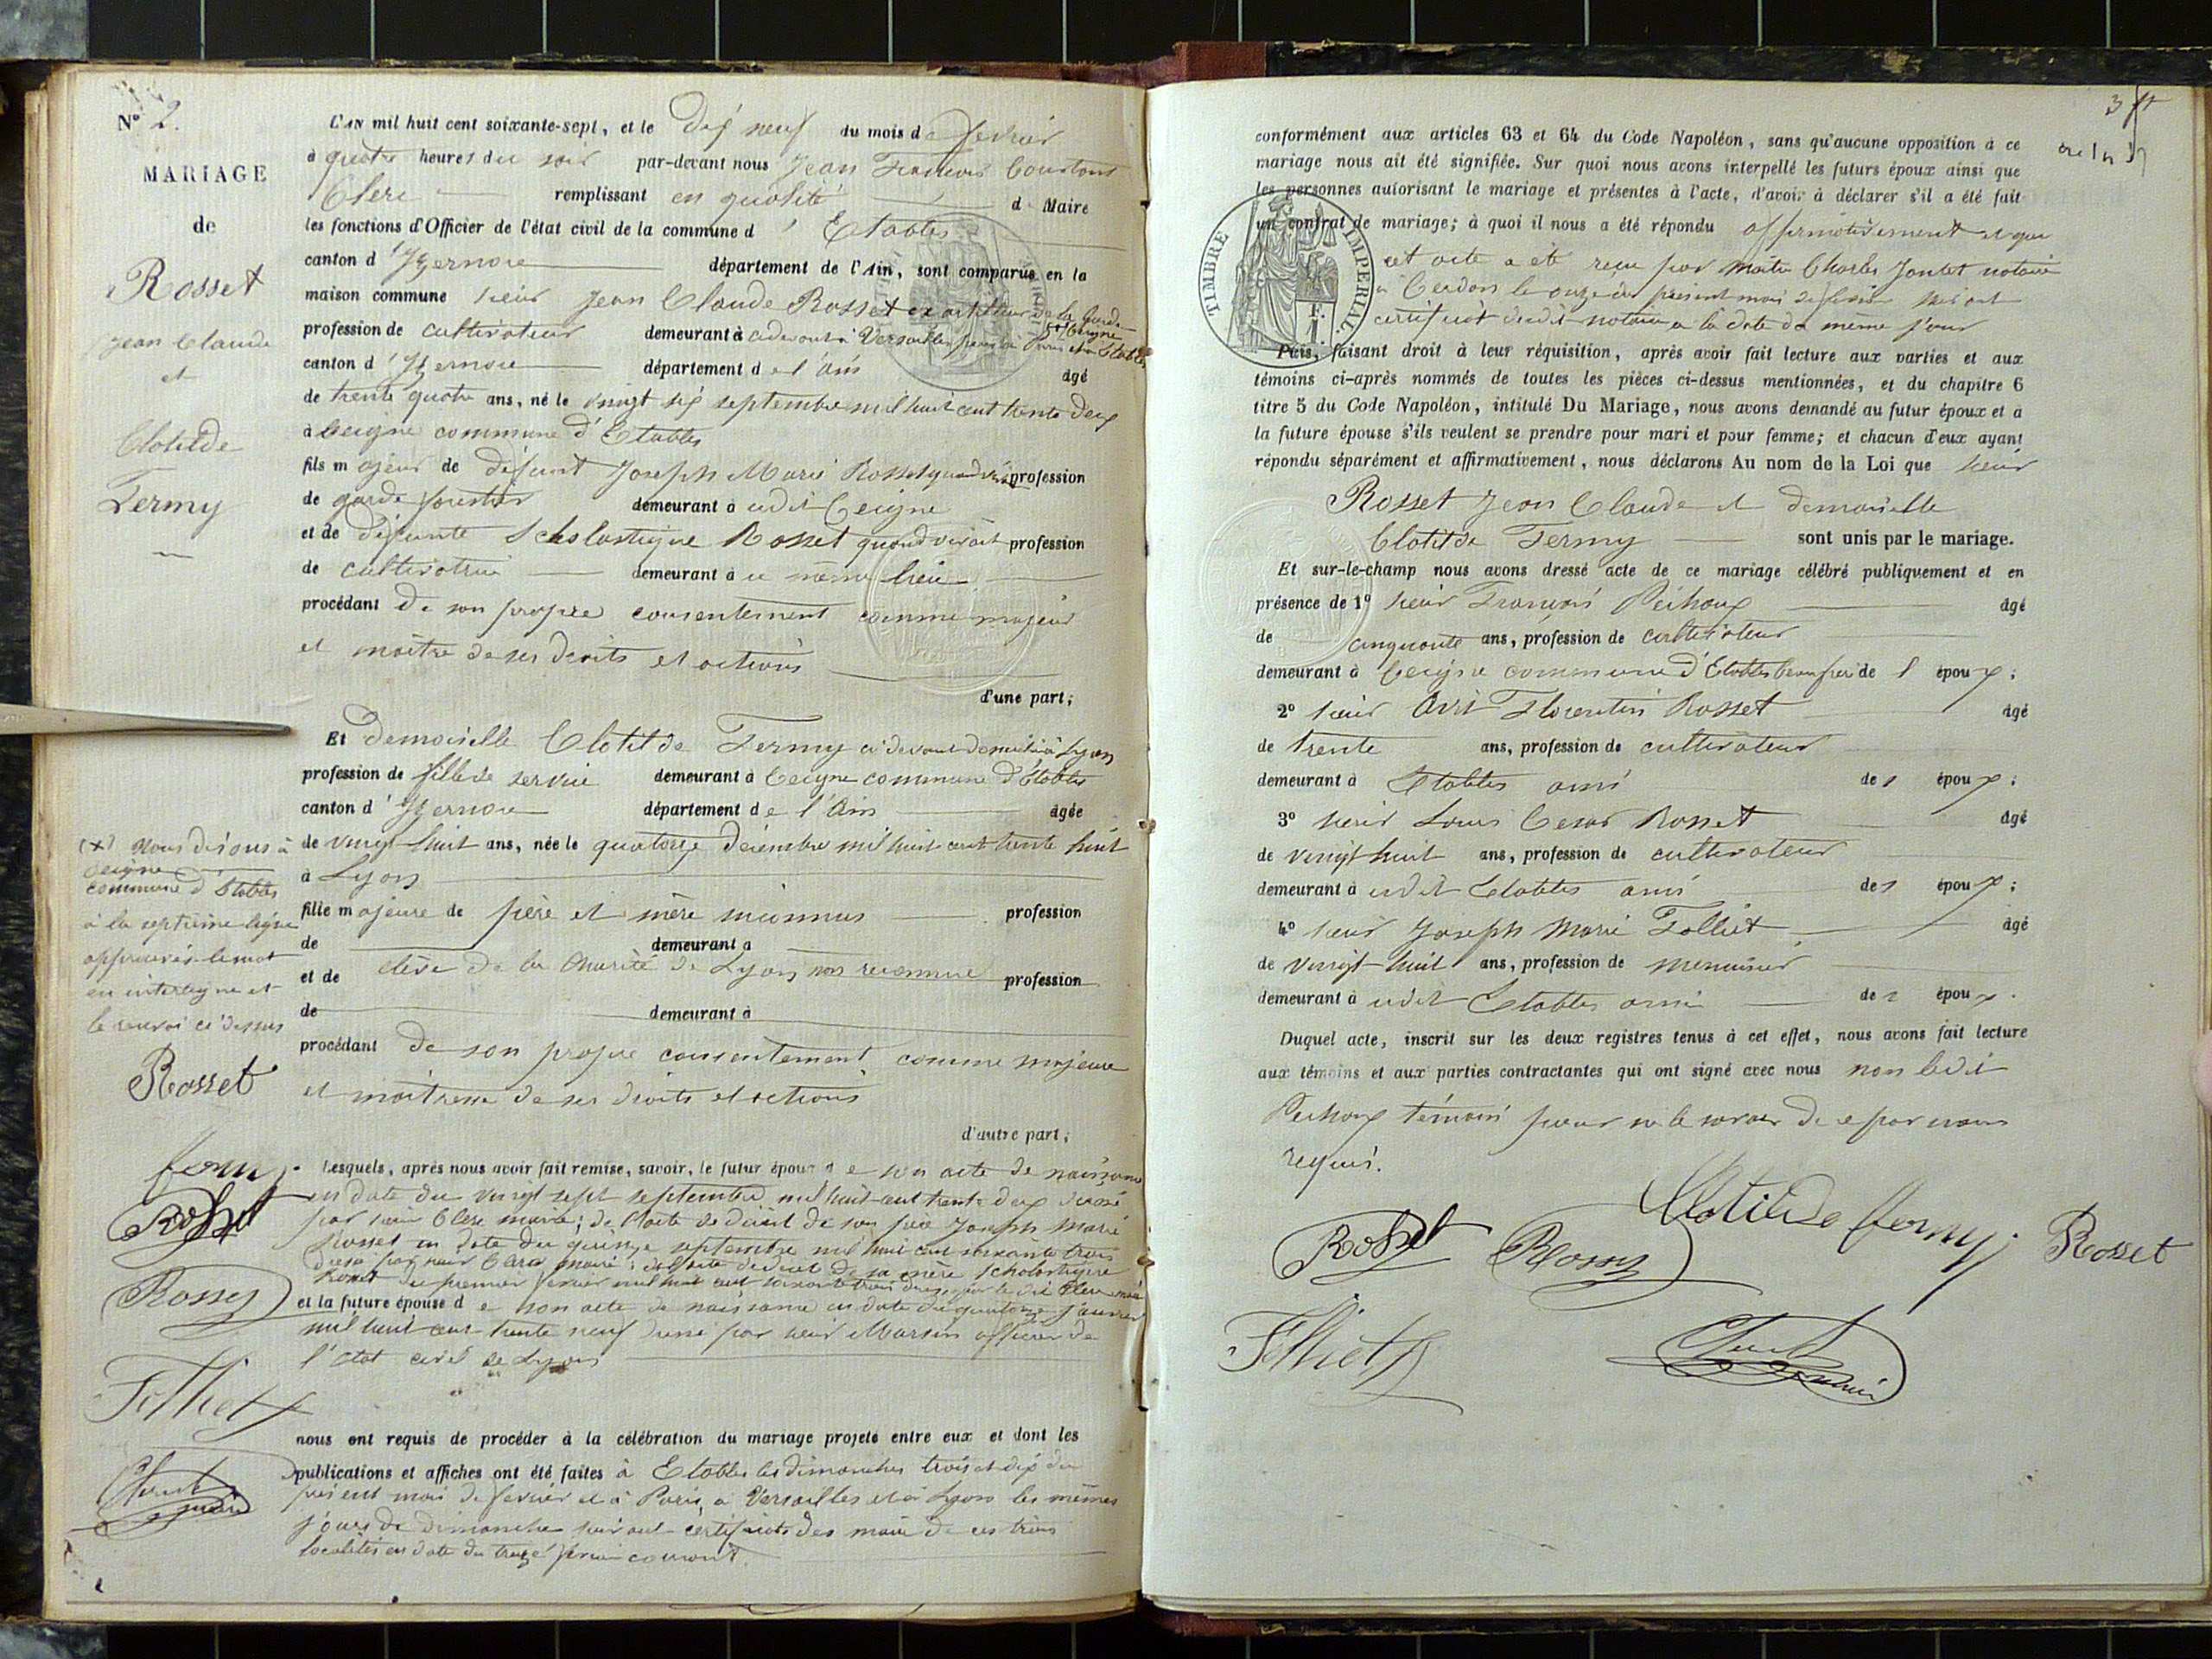 N° 2.
MARIAGE
de
Rosset
Jean Claude
et
Clotilde
Fermy
L'AN mil huit cent soixante-sept, et le dix neuf du mois de fevrier
à quatre heures du soir par-devant nous Jean François Constant
Clerc remplissant en qualité de Maire
les fonctions d'Officier de l'état civil de la commune d'Etables
canton d'Izernore département de l'Ain, sont comparus en la
maison commune sieur Jean Claude Rosset ex artilleur de la Garde
profession de cultivateur demeurant à cidevant à Versailles puis à Paris et à Etables
canton d'Izernore département de l'Ain âgé
de trente quatre ans, né le vingt six septembre mil huit cent trente deux
à Ceigne commune d'Etables
fils majeur de défunt Joseph Marie Rosset quand vivait profession
de garde forestier demeurant à audit Ceigne
et de défunte Scholastique Rosset quand vivait profession
de cultivatrice demeurant à ce même lieu
procédant de son propre consentement comme majeur
et maître de ses droits et actions
d'une part;
Et demoiselle Clotilde Fermy ci devant domiciliée à Lyon
profession de fille de service demeurant à Ceigne commune d'Etables
canton d'Izernore département de l'Ain âgée
de vingt huit ans, née le quatorze décembre mil huit cent trente huit
à Lyon
fille majeure de père et mère inconnus profession
de demeurant à
et de élève de la charité de Lyon non reconnue profession
de demeurant à
procédant de son propre consentement comme majeure
et maîtresse de ses droits et actions
d'autre part;
(x) Nous disons à
Ceigne
commune d'Etables
à la septième ligne
approuvés le mot
en interligne et
le renvoi ci dessus
Rosset
fermy
Rosset
Rosset
Folliet
Clerc
maire
Lesquels, après nous avoir fait remise, savoir, le futur époux de son acte de naissance
en date du vingt sept septembre mil huit cent trente deux dressé
par sieur Clerc maire; de l'acte de décès de son père Joseph Marie
Rosset en date du quinze septembre mil huit cent soixante trois
dressé par sieur Clerc maire; et l'acte de décès de sa mère Scholastique
Rosset du premier fevrier mil huit cent soixante trois dressé par le dit Clerc maire
et la future épouse de son acte de naissance en date du quatorze janvier
mil huit cent trente neuf dressé par sieur Martin officier de
l'état civil de Lyon
nous ont requis de procéder à la célébration du mariage projeté entre eux et dont les
publications et affiches ont été faites à Etables les dimanches trois et dix du
présent mois de fevrier et à Paris, à Versailles et à Lyon les mêmes
jours de dimanche suivant certificats des maires de ces trois
localités en date du treize fevrier courant.
conformément aux articles 63 et 64 du Code Napoléon, sans qu'aucune opposition à ce
mariage nous ait été signifiée. Sur quoi nous avons interpellé les futurs époux ainsi que
les personnes autorisant le mariage et présentes à l'acte, d'avoir à déclarer s'il a été fait
un contrat de mariage; à quoi il nous a été répondu affirmativement et que
cet acte a été reçu par maître Charles Jantet notaire
à Cerdon le onze du présent mois de fevrier suivant
certificat dudit notaire à la date du même jour
TIMBRE IMPERIAL
Puis, faisant droit à leur réquisition, après avoir fait lecture aux parties et aux
témoins ci-après nommés de toutes les pièces ci-dessus mentionnées, et du chapitre 6
titre 5 du Code Napoléon, intitulé Du Mariage, nous avons demandé au futur époux et à
la future épouse s'ils veulent se prendre pour mari et pour femme; et chacun d'eux ayant
répondu séparément et affirmativement, nous déclarons Au nom de la Loi que sieur
Rosset Jean Claude et demoiselle
Clotilde Fermy sont unis par le mariage.
Et sur-le-champ nous avons dressé acte de ce mariage célébré publiquement et en
présence de 1° sieur François Péchoux âgé
de cinquante ans, profession de cultivateur
demeurant à Ceigne commune d'Etables beau frère de l'époux;
2° sieur Avri Florentin Rosset âgé
de trente ans, profession de cultivateur
demeurant à Etables ami de l'époux;
3° sieur Louis Cesar Rosset âgé
de vingt huit ans, profession de cultivateur
demeurant à audit Etables ami de l'époux;
4° sieur Joseph Marie Folliet âgé
de vingt huit ans, profession de menuisier
demeurant à audit Etables ami de l'époux.
Duquel acte, inscrit sur les deux registres tenus à cet effet, nous avons fait lecture
aux témoins et aux parties contractantes qui ont signé avec nous non ledit
Péchoux témoin pour ne le savoir de ce par nous
requis.
Clotilde fermy
Rosset Rosset Rosset
Folliet Clerc
maire